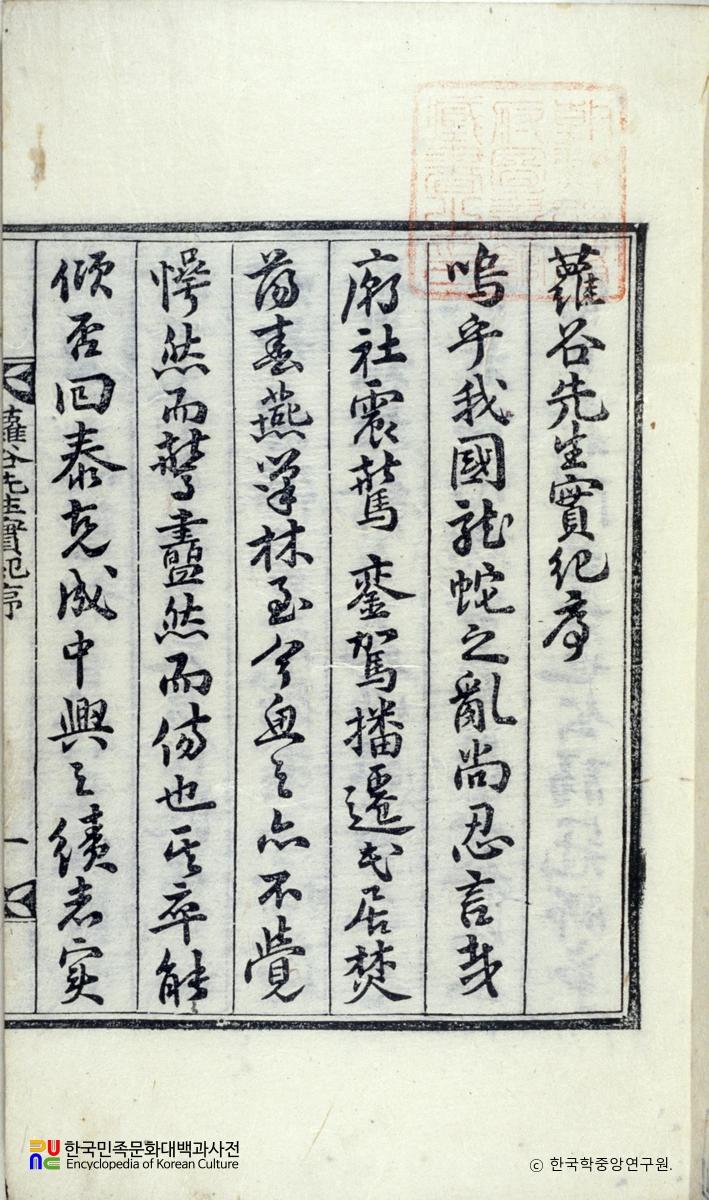 蘿谷先生實紀序
嗚乎我國龍蛇之亂尚忍言哉
廟社震驚 鑾駕播遷民居焚
蕩春燕巢林至今思之亦不覺
愕然而驚衋然而傷也其卒能
傾否回泰克成中興之績者寔
蘿谷先生實紀序
一
한국민족문화대백과사전
Encyclopedia of Korean Culture
ⓒ 한국학중앙연구원.